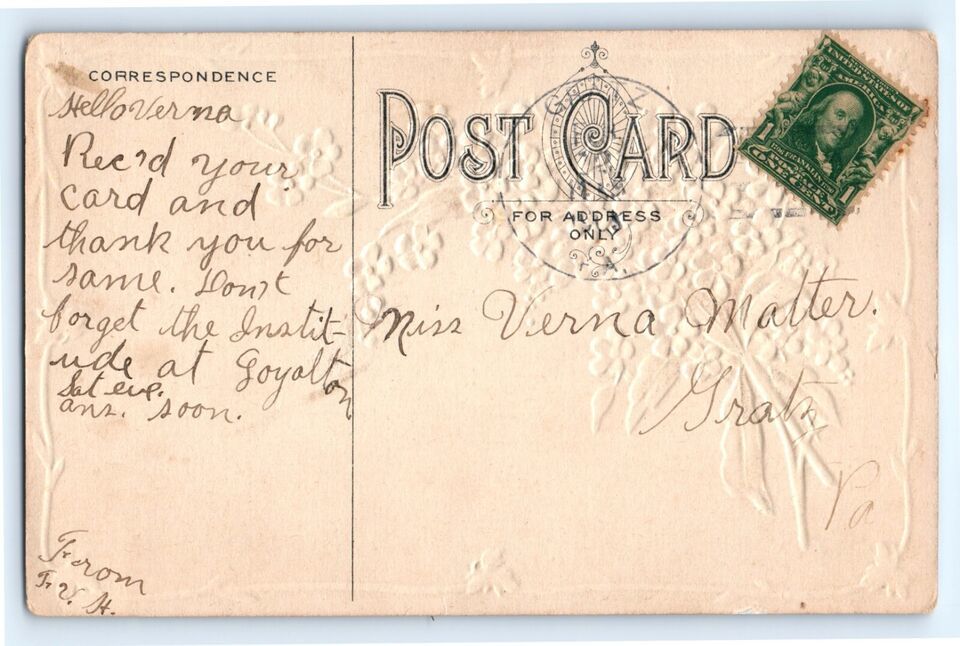 CORRESPONDENCE
Hello Verna
Rec'd your
card and
thank you for
same. Don't
forget the Instit-
ude at Loyalton
Sat eve.
ans. soon.
From
F. V. H.
POST CARD
FOR ADDRESS
ONLY
Miss Verna Matter.
Gratz
Pa
UNITED STATES OF
AMERICA
1706 FRANKLIN 1790
1 ONE CENT 1